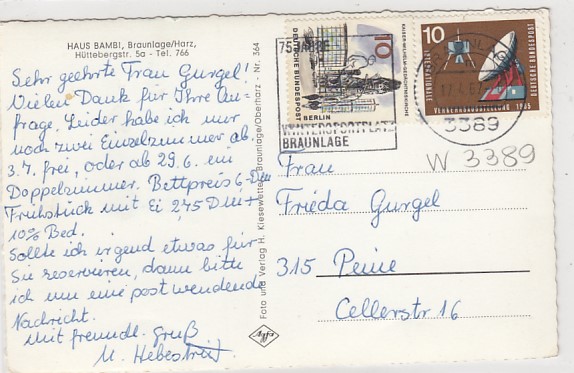 HAUS BAMBI, Braunlage/Harz,
Hüttebergstr. 5a - Tel. 766
Sehr geehrte Frau Gurgel!
Vielen Dank für Ihre An-
frage, Leider habe ich nur
noch zwei Einzelzimmer ab
3.7. frei, oder ab 29.6. ein
Doppelzimmer. Bettpreis 6,- DM
Frühstück mit Ei 2,75 DM +
10% Bed.
Sollte ich irgend etwas für
Sie reservieren, dann bitte
ich um eine postwendende
Nachricht.
Mit freundl. Gruß
M. Hebestreit
Foto und Verlag H. Kiesewetter, Braunlage/Oberharz - Nr. 364
Agfa
75 JAHRE
WINTERSPORTPLATZ
BRAUNLAGE
DEUTSCHE BUNDESPOST
BERLIN
10
KAISER-WILHELM-GEDÄCHTNISKIRCHE
10
INTERNATIONALE
VERKEHRSAUSSTELLUNG 1965
DEUTSCHE BUNDESPOST
3389
W 3389
Frau
Frieda Gurgel
315 Peine
Cellerstr 16